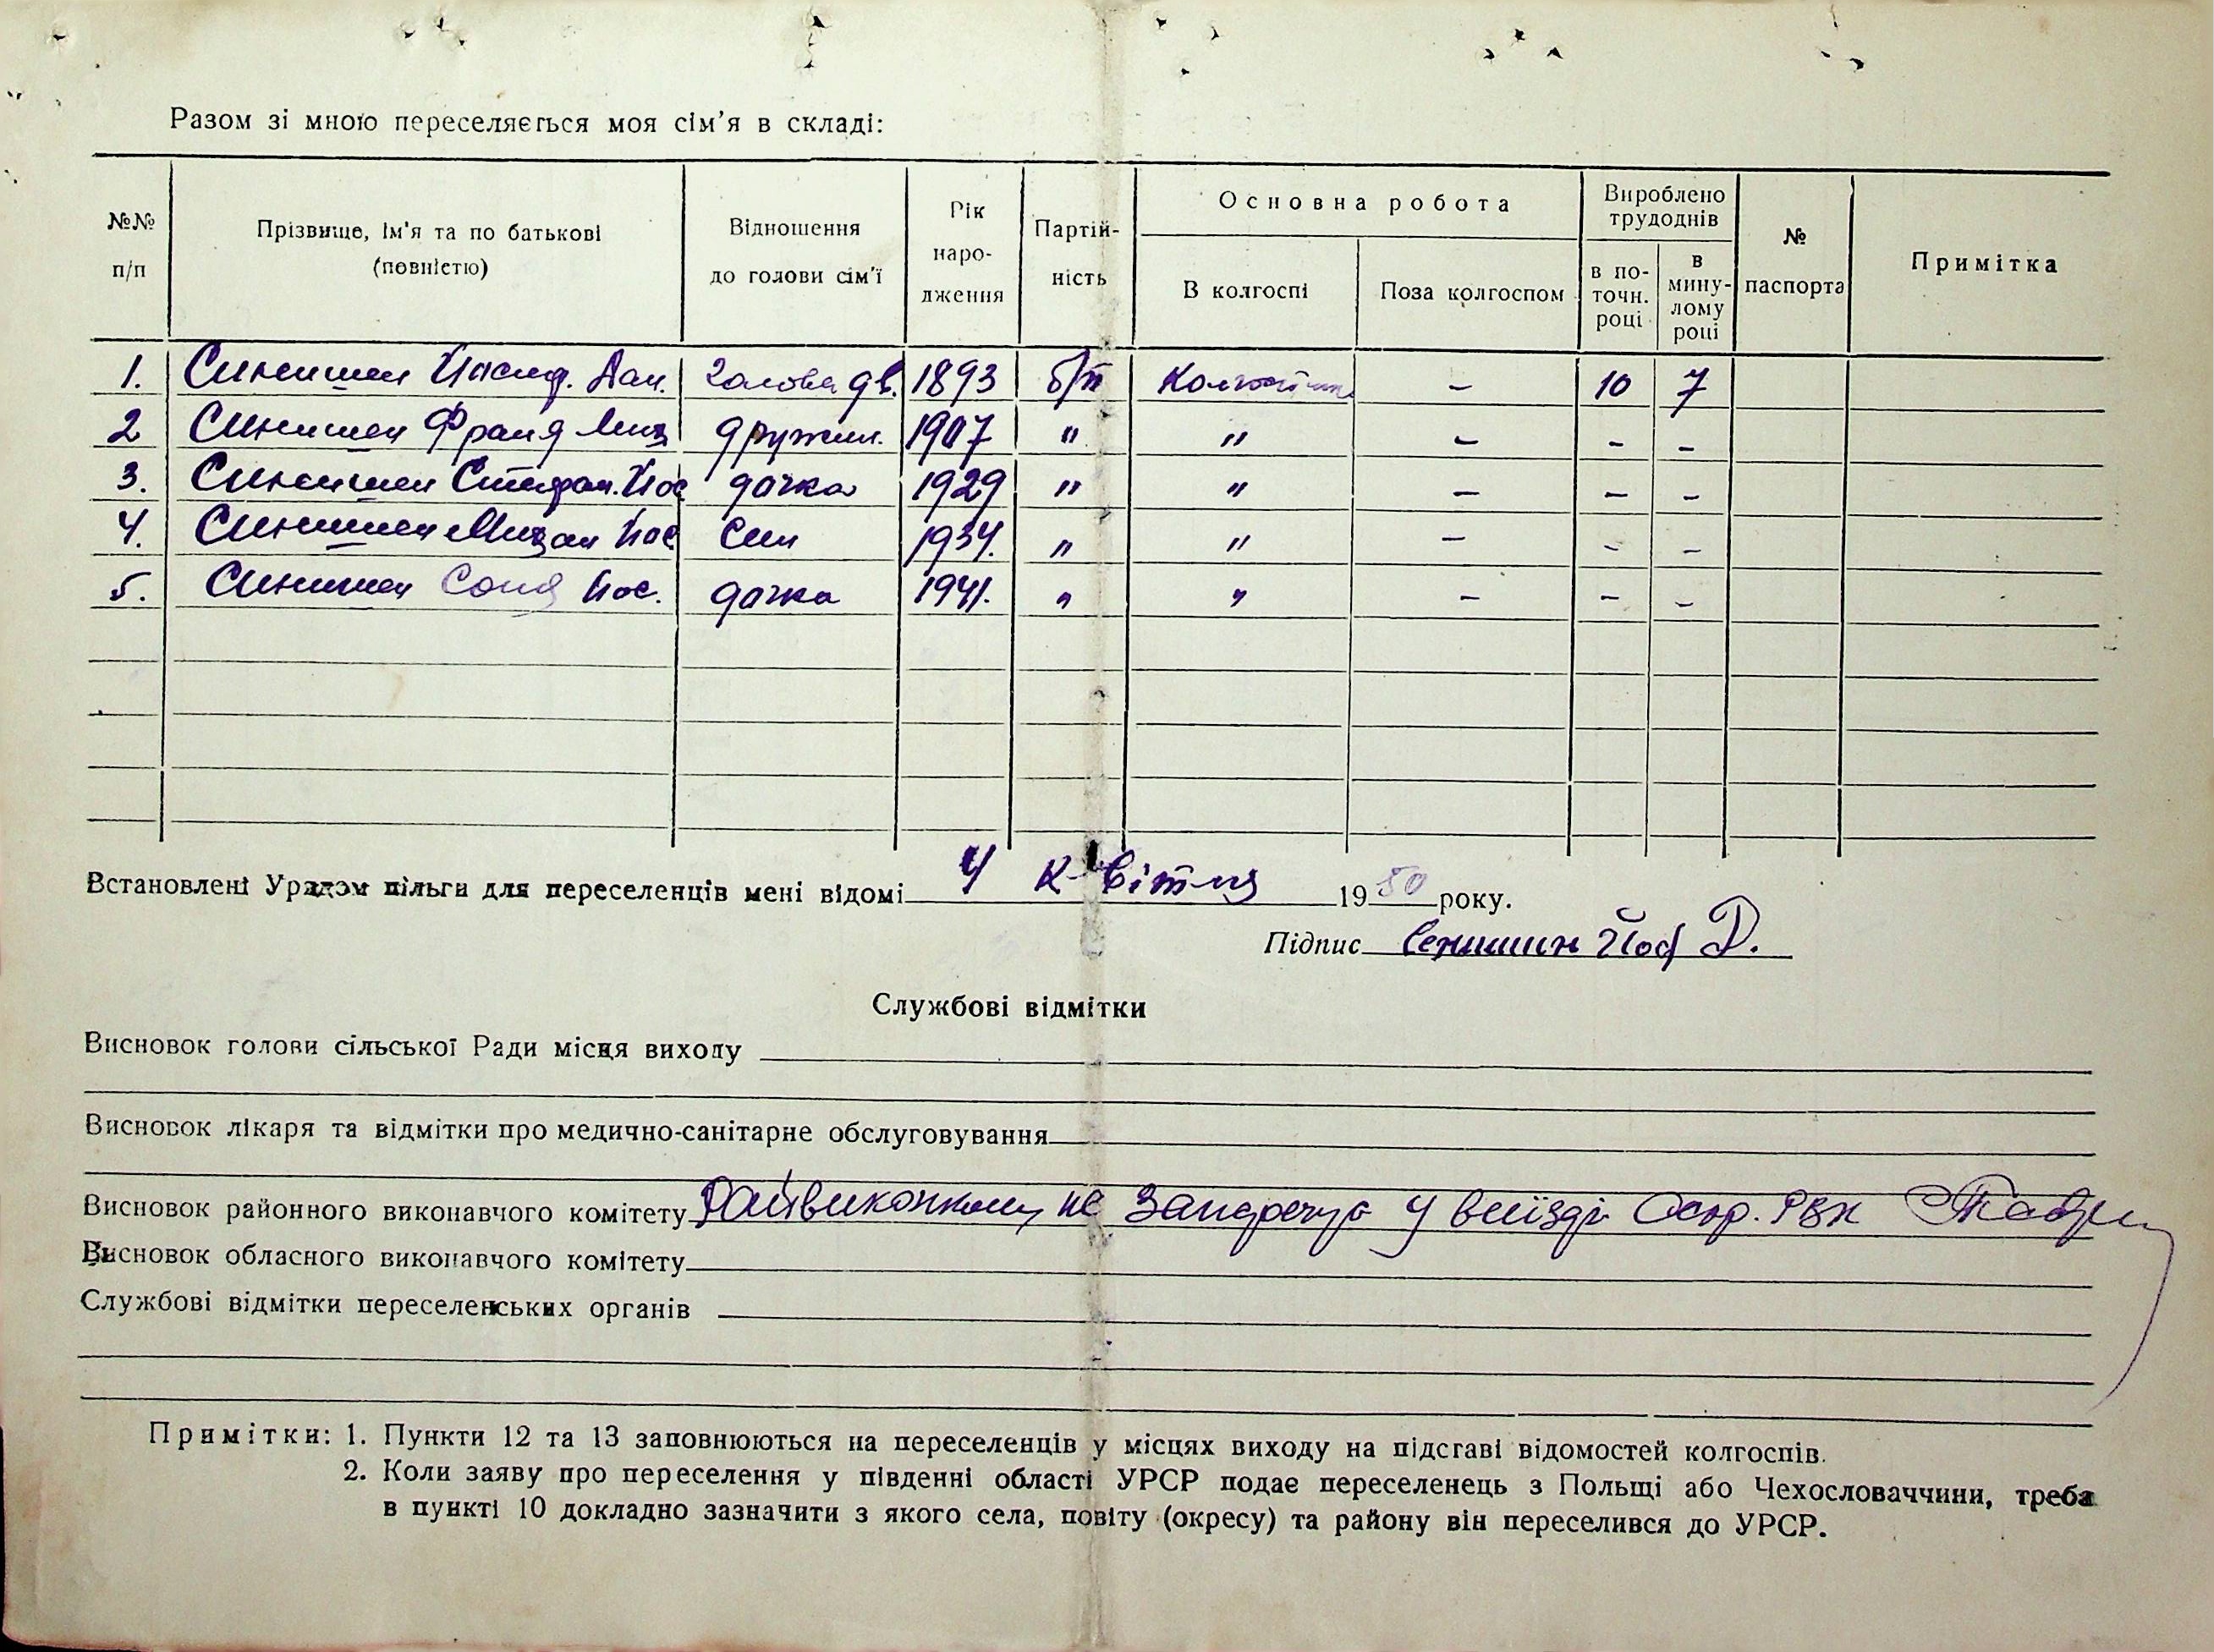 Разом зі мною переселяється моя сім'я в складі:
№№ п/п
Прізвище, ім'я та по батькові (повністю)
Відношення до голови сім'ї
Рік народження
Партійність
Основна робота
В колгоспі
Поза колгоспом
Вироблено трудоднів
в поточн. році
в минулому році
№ паспорта
Примітка
1. Синишин Йосиф. Дан. голова дв. 1893 б/п Колгоспник – 10 7
2 Синишин Франя Мих дружин. 1907 " " – – –
3. Синишин Стефан. Йос дочка 1929 " " – – –
4. Синишин Михай Йос син 1934. " " – – –
5. Синишин Соня Йос. дочка 1941. " " – – –
Встановлені Урядом пільги для переселенців мені відомі 4 квітня 1950 року.
Підпис Сенишин Йос Д.
Службові відмітки
Висновок голови сільської Ради місця виходу
Висновок лікаря та відмітки про медично-санітарне обслуговування
Висновок районного виконавчого комітету Райвиконком не заперечує у виїзді РВК
Висновок обласного виконавчого комітету
Службові відмітки переселенських органів
Примітки: 1. Пункти 12 та 13 заповнюються на переселенців у місцях виходу на підставі відомостей колгоспів.
2. Коли заяву про переселення у південні області УРСР подає переселенець з Польщі або Чехословаччини, треба
в пункті 10 докладно зазначити з якого села, повіту (окресу) та району він переселився до УРСР.